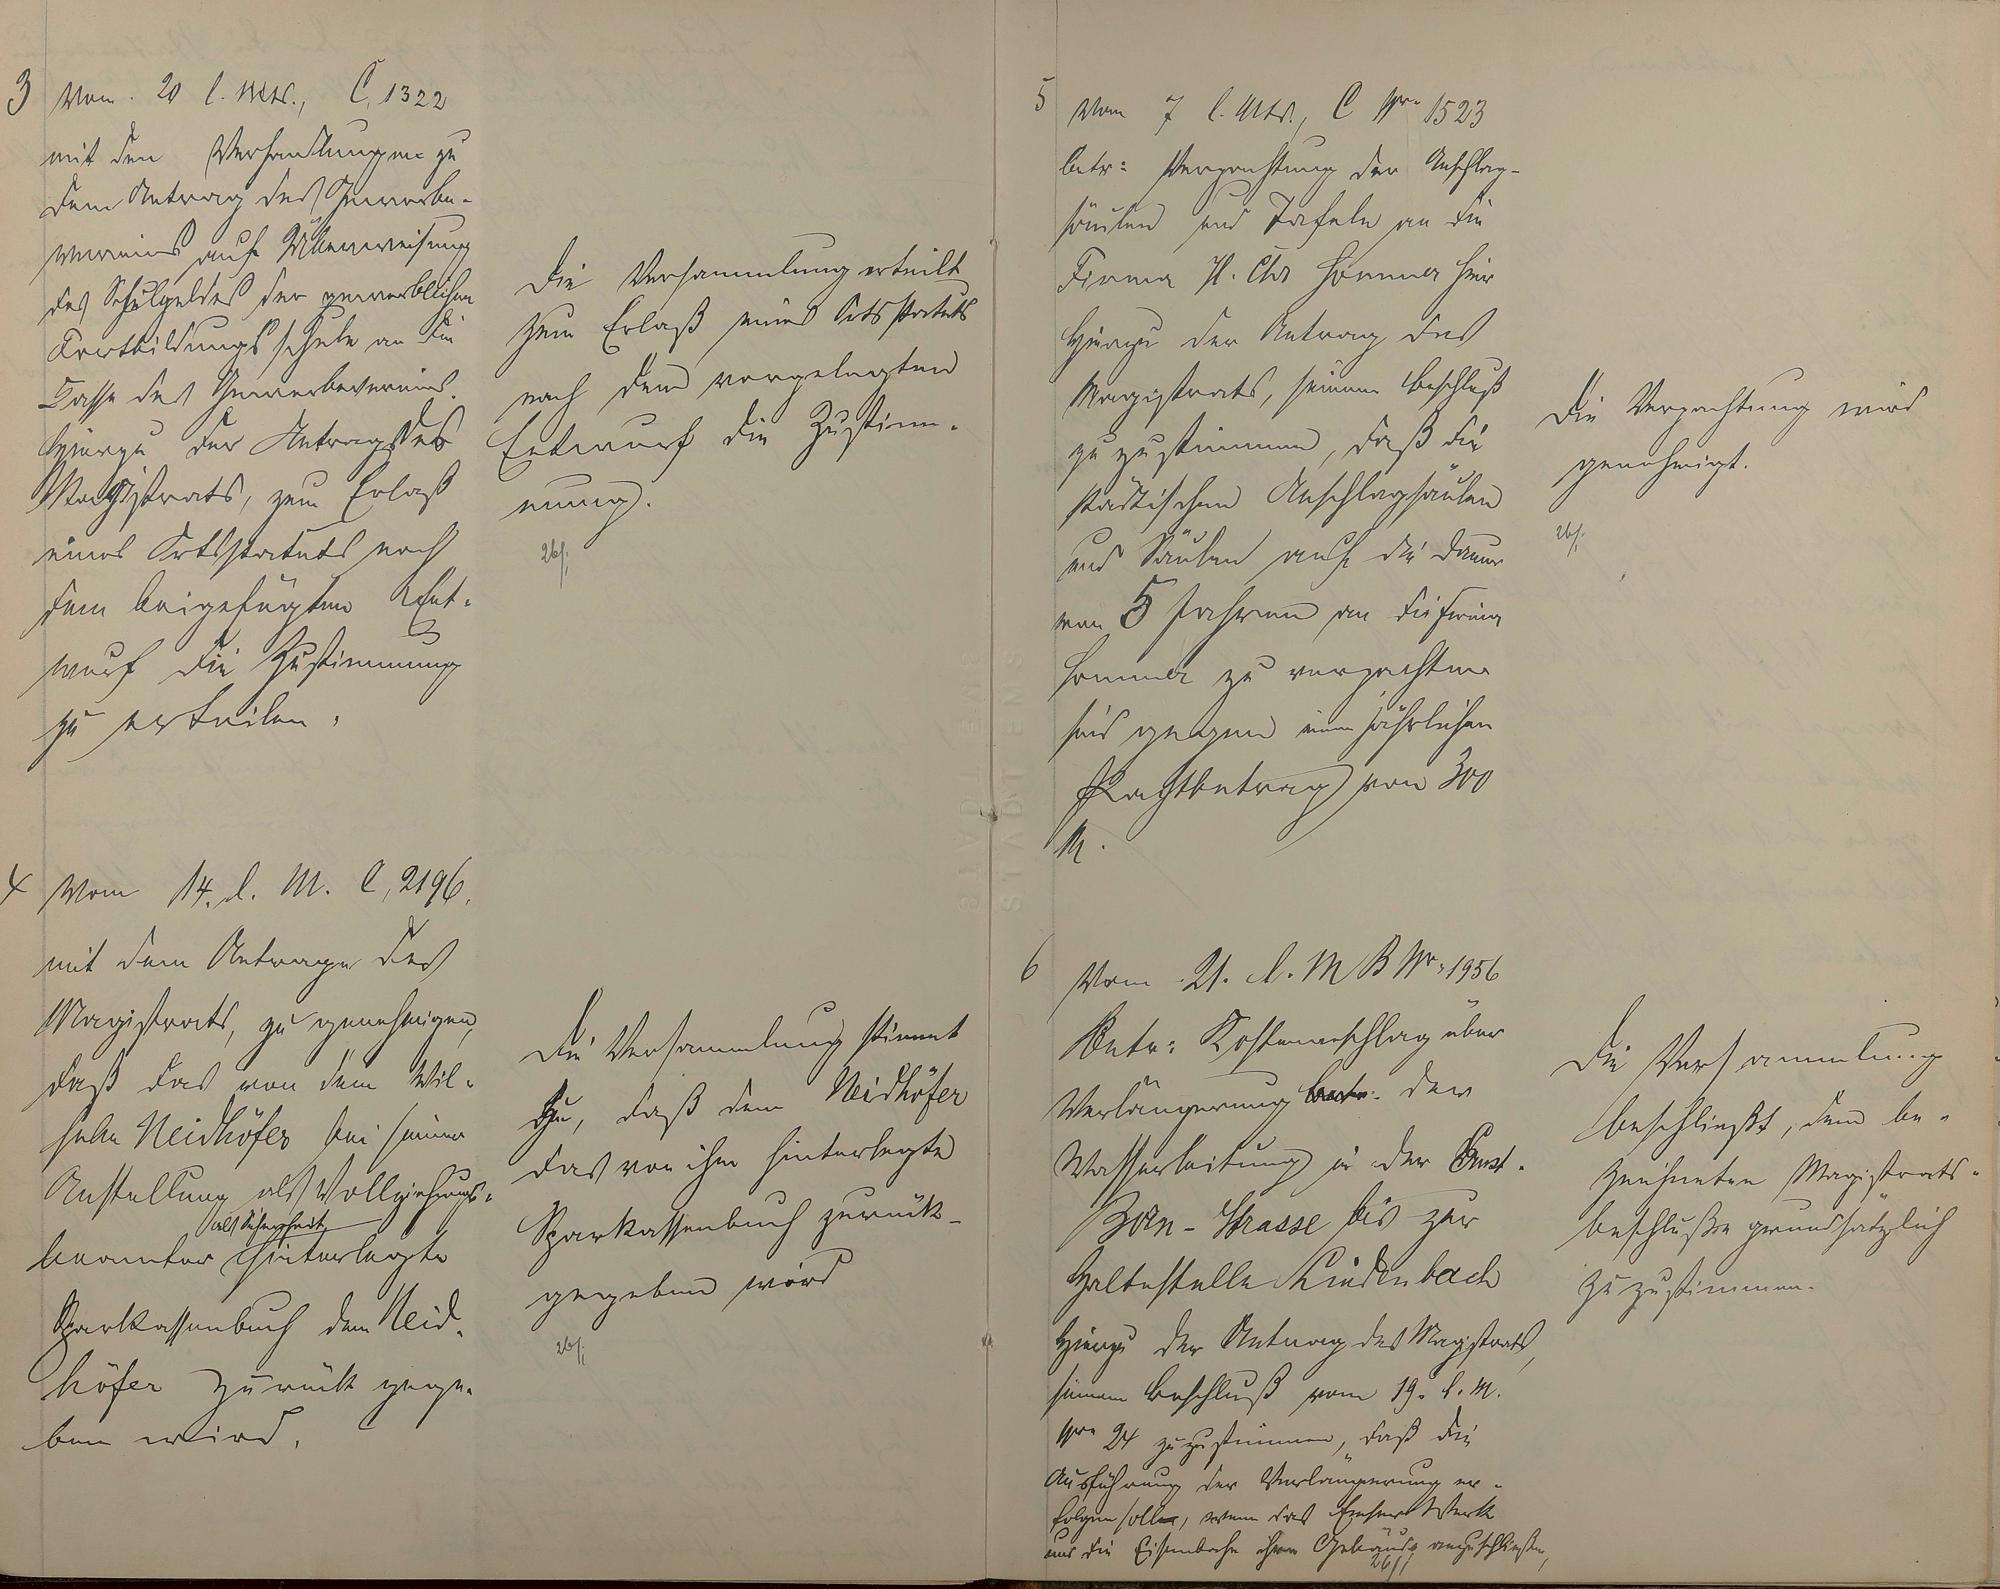 3 Vom 20 l. Mts., C, 1322
mit den Verhandlungen zu
dem Antrag des Gewerbe-
vereins auf Überweisung
des Schulgeldes der gewerblichen
Fortbildungsschule an die
Casse des Gewerbevereins.
Hierzu der Antrag des
Magistrats, zum Erlaß
eines Ortsstatuts nach
dem beigefügten Ent-
wurf die Zustimmung
zu erteilen.
Die Versammlung erteilt
zum Erlaß eines Ortsstatuts
nach dem vorgelegten
Entwurf die Zustim-
mung.
26/1
4 Vom 14. d. M. C, 2196.
mit dem Antrage des
Magistrats, zu genehmigen,
daß das von dem Wil-
helm Neidhöfer bei seiner
Anstellung als Vollziehungs-
beamter als Sicherheit hinterlegte
Sparkassenbuch dem Neid-
höfer zurück gege-
ben wird.
Die Versammlung stimmt
zu, daß dem Neidhöfer
das von ihm hinterlegte
Sparkassenbuch zurück-
gegeben wird
26/1
5 Vom 7 l. Mts., C Nr. 1523
betr: Verpachtung der Anschlag-
säulen und Tafeln an die
Firma H. Chr Sommer hier
Hierzu der Antrag des
Magistrats, seinem Beschluß
zuzustimmen, daß die
städtischen Anschlagsäulen
und Säulen auf die Dauer
von 5 Jahren an die Firma
Sommer zu verpachten
sind gegen einen jährlichen
Pachtbetrag von 300
M.
Die Verpachtung wird
genehmigt.
26/1
6 Vom 21. d. M B Nr. 1956
Betr: Kostenanschlag über
Verlängerung der
Wasserleitung in der Ernst-
Born-Strasse bis zur
Haltestelle Lindenbach
Hierzu der Antrag des Magistrats,
seinem Beschluß vom 19. l. M.
Nr. 24 zuzustimmen, daß die
Ausführung der Verlängerung er-
folgen soll, wenn das Emser Werk
und die Eisenbahn ihre Gebäude anzuschließen,
26/1
Die Versammlung
beschließt, dem be-
zeichneten Magistrats-
beschluße grundsätzlich
zuzustimmen.